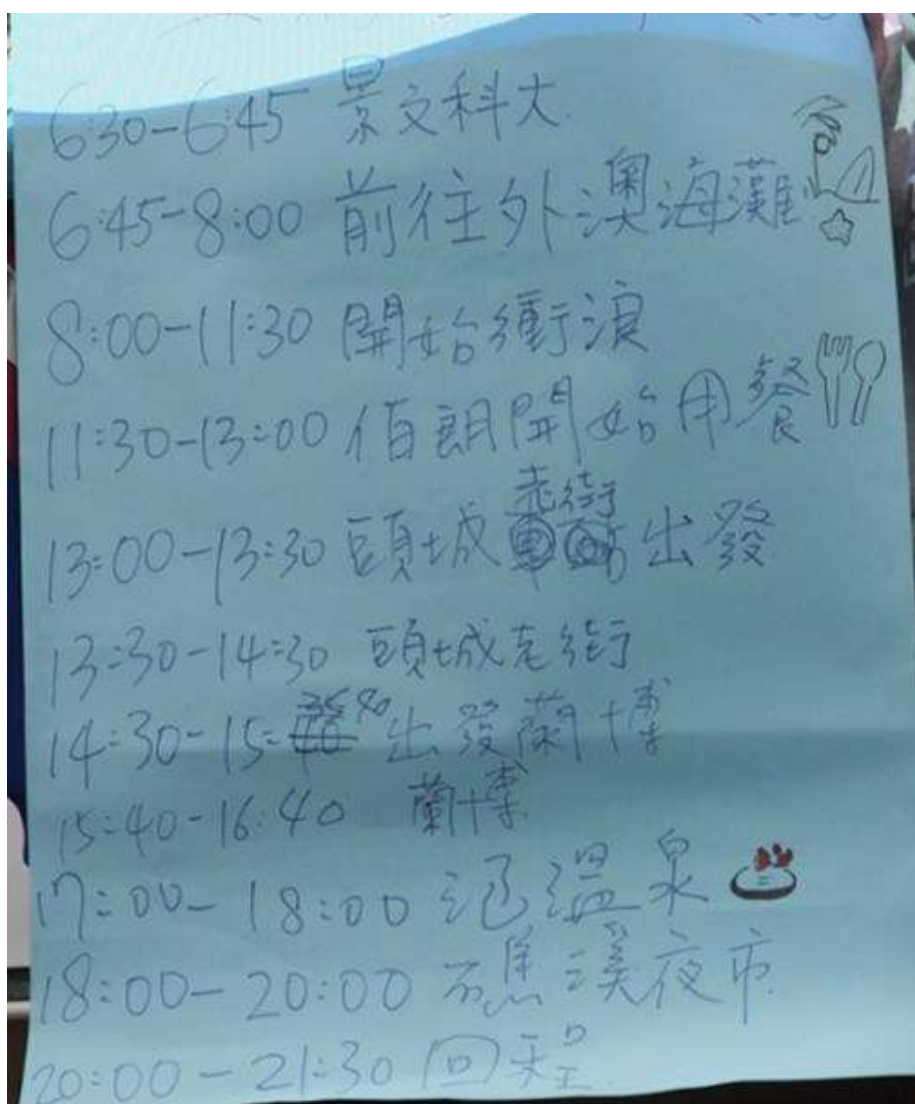 6:30-6:45 景文科大
6:45-8:00 前往外澳海灘
8:00-11:30 開始衝浪
11:30-13:00 伯朗開始用餐
13:00-13:30 頭城老街出發
13:30-14:30 頭城老街
14:30-15:40 出發蘭博
15:40-16:40 蘭博
17:00-18:00 泡溫泉
18:00-20:00 礁溪夜市
20:00-21:30 回程